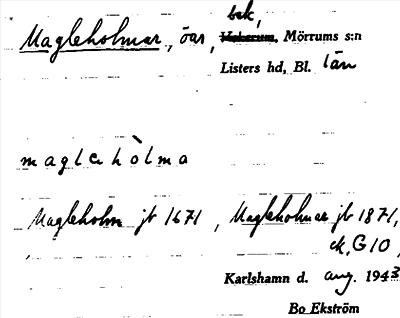 bek,
Magleholmar, öar, Vekerum, Mörrums s:n
Listers hd, Bl. län
maglehòlma
Magleholm jb 1671, Magleholmar jb 1871,
ek, G10,
Karlshamn d. aug. 1943
Bo Ekström